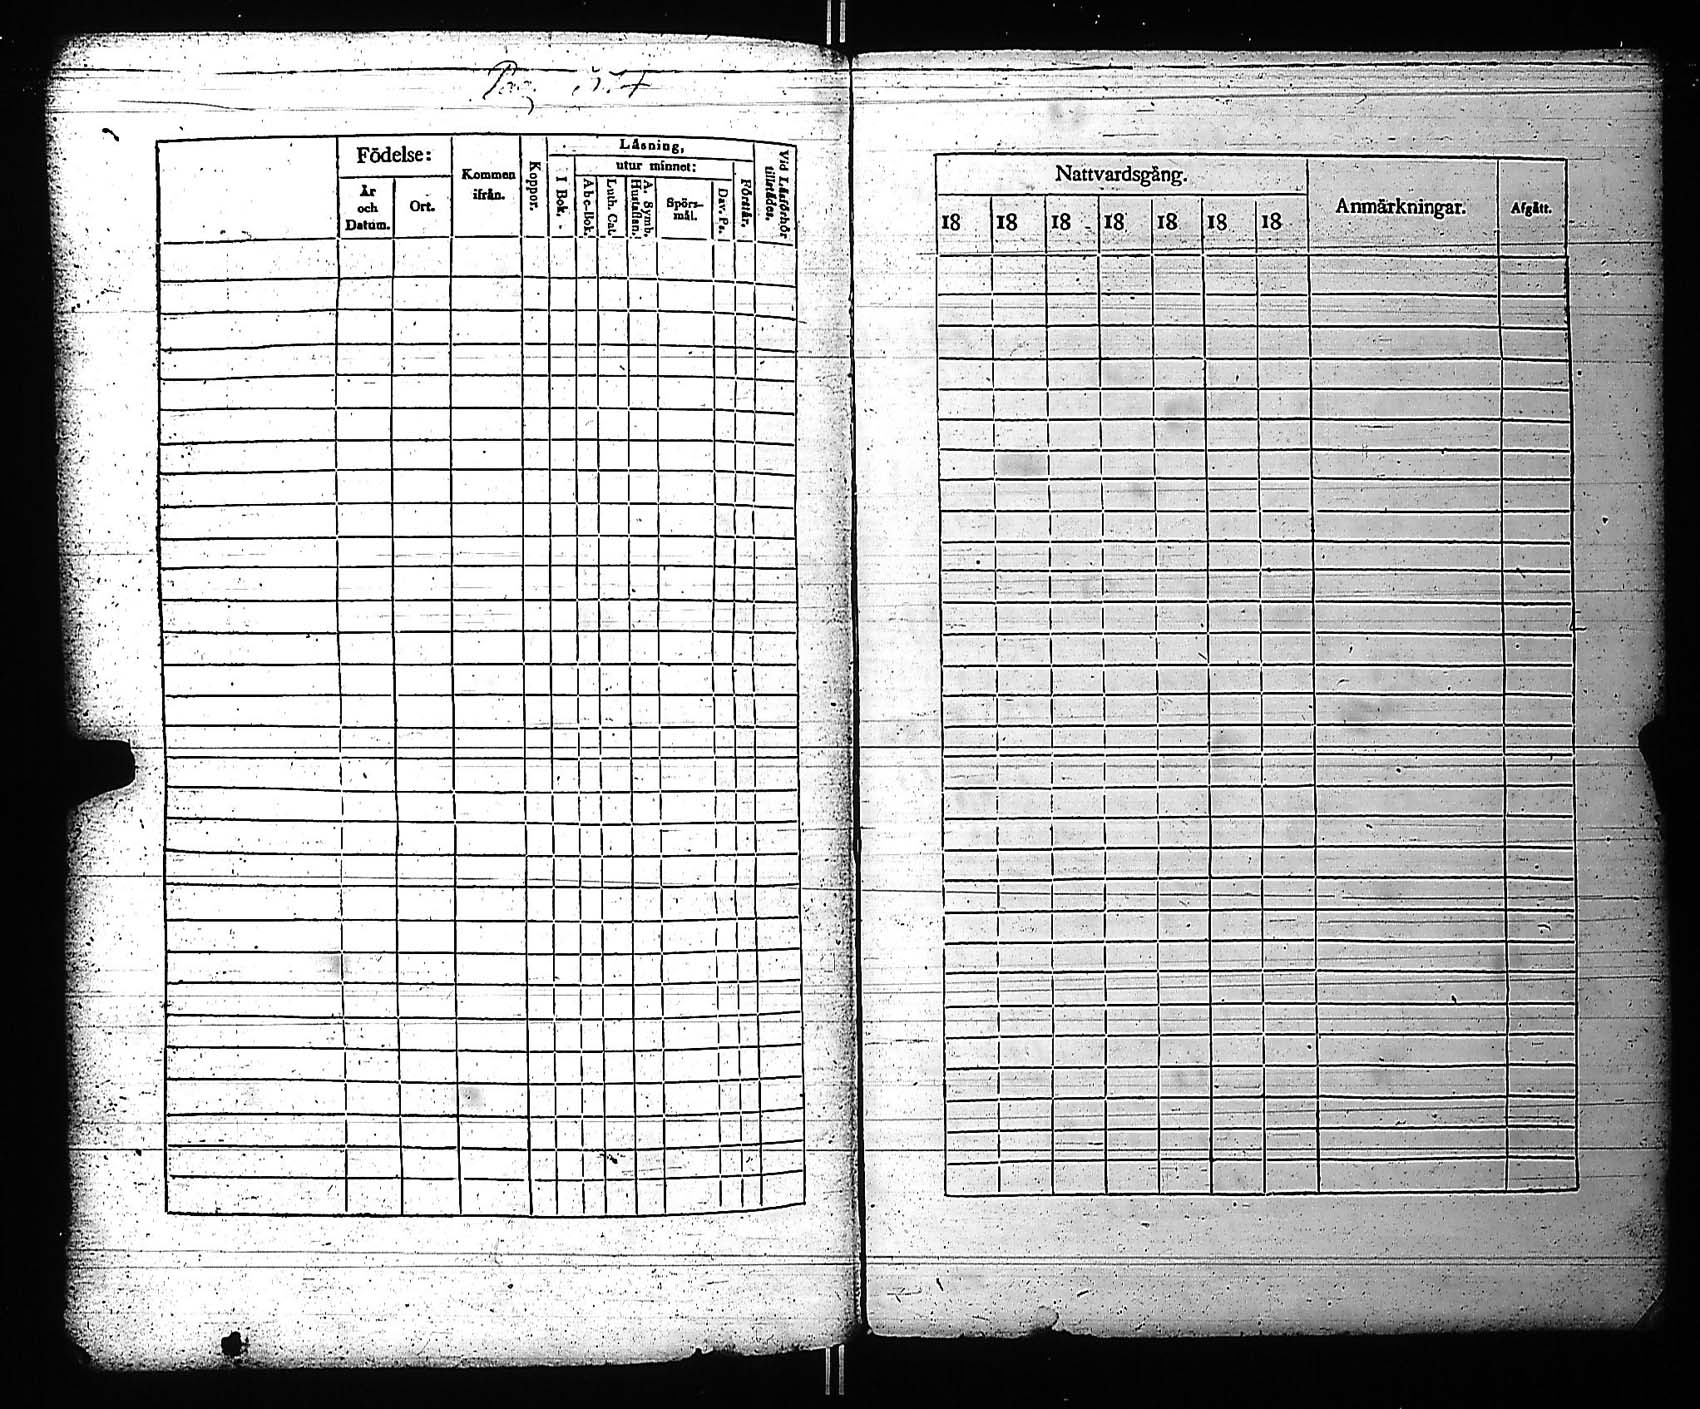 Pag.
Födelse:
År
och
Datum.
Ort.
Kommen
ifrån.
Koppor.
Läsning,
utur minnet:
I Bok.
Abc-Bok
Luth. Cat.
A. Symb.
Hustaflan.
Spörs-
mål.
Dav. Ps.
Förstår.
Vid Läsförhör
tillstädes.
Nattvardsgång.
18 18 18 18 18 18 18
Anmärkningar.
Afgått.